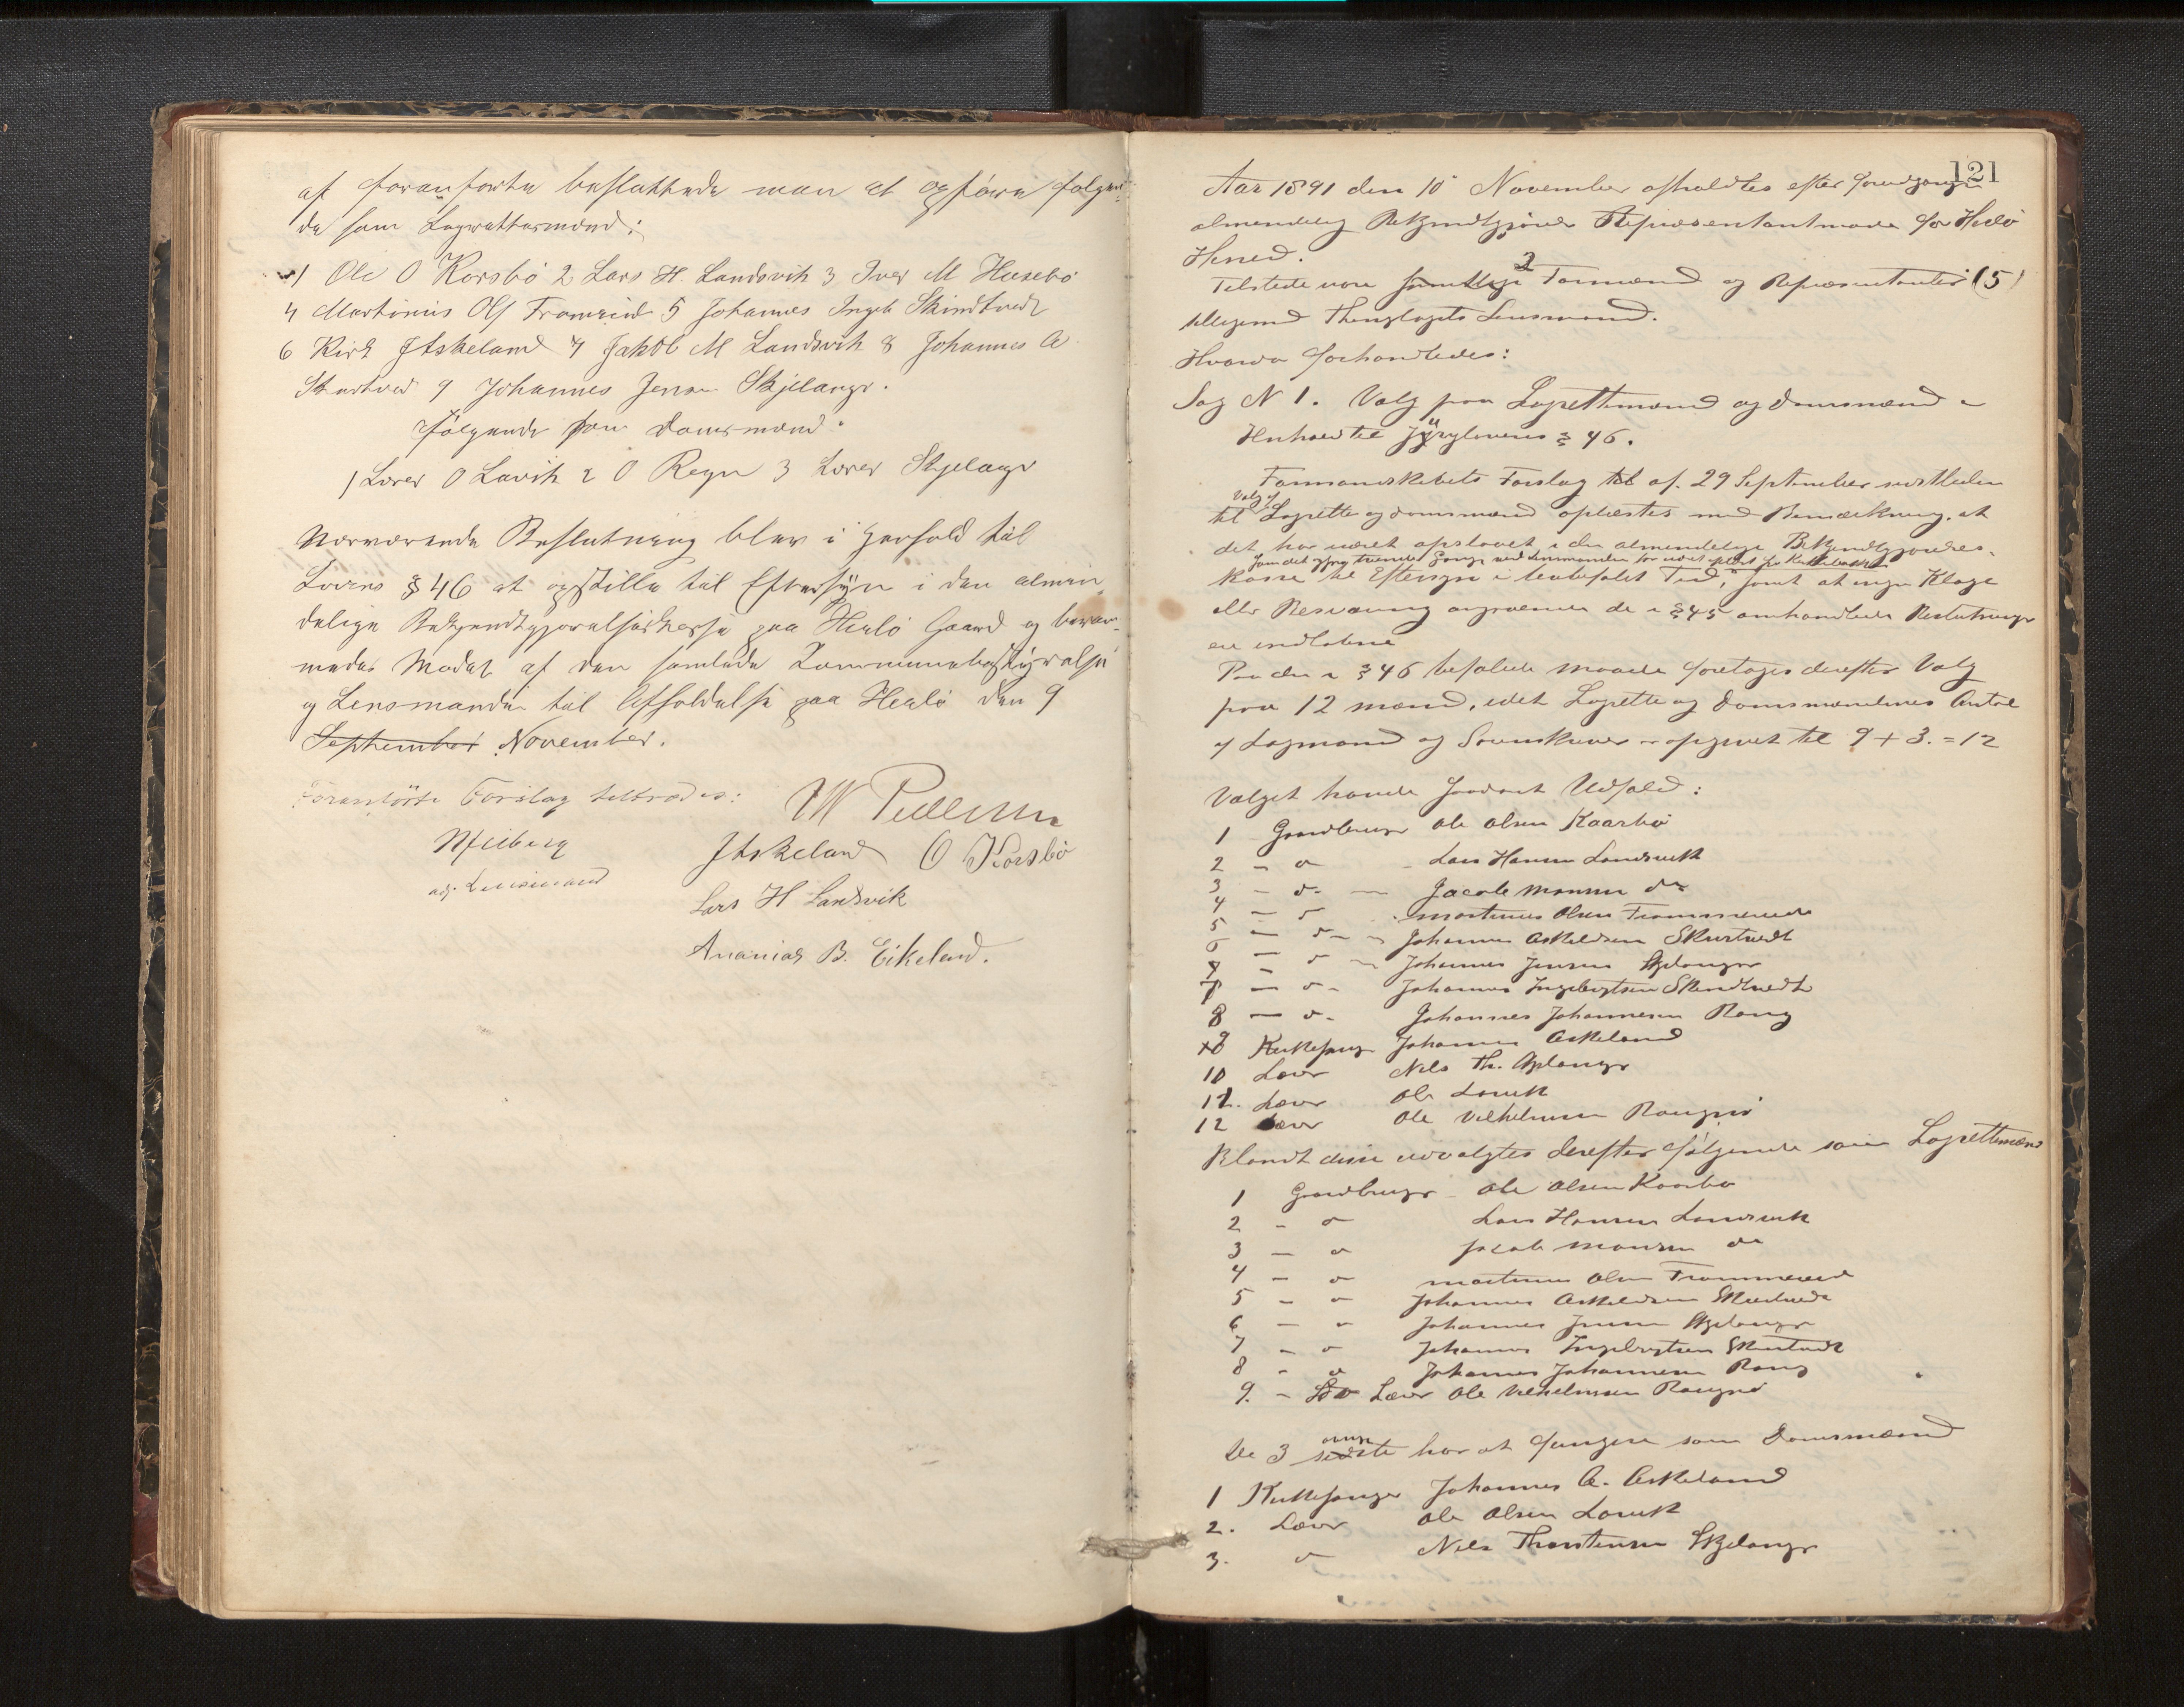 af foranførte besluttede man at opføre følgen-
de som Lagrettesmænd:
1 Ole O Korsbø 2 Lars H. Landsvik 3 Iver M Husebø
4 Martinius Ols Fromreide 5 Johannes Ingeb Skindtvedt
6 Kirks J Askeland 7 Jakob M Landsvik 8 Johannes A
Skurtved 9 Johannes Jensen Skjelanger.
følgende som Domsmænd:
1 Lærer O Lavik 2 O Regn 3 Lærer Skjelanger
Nærværende Beslutning blev i Henhold til
Lovens § 46 at opstille til Eftersyn i den almin-
delige Bekjendtgjørelseskasse paa Herlø Gaard og beram-
medes Mødet af den samlede Kommunebestyrelse
og Lensmanden til Afholdelse paa Herlø den 9
September November.
Foranførte Forslag tiltrædes:
M Pedersen
Askeland O Korsbø
adj. Lensmand
Lars H Landsvik
Ananias B. Eikeland.
121
Aar 1891 den 10 November afholdtes efter foregangen
almendelig Bekjendtgjørelse Repræsentantmøde for Herlø
Herred.
Tilstede vare samtlige 2 Formænd og Repræsentanter (5)
tilligemed Thinglagets Lensmand.
Hvorda forhandledes:
Sag N 1. Valg paa Lagrettemænd og Domsmænd i
Henhold til Jurylovens § 46.
Formandskabets Forslag til af. 29 September sidstleden
til Valg af Lagrette og Domsmænd oplæstes med Bemærkning, at
det har været opslaaet i den almendelige Bekjendtgjørelses-
kasse til Eftersyn i lovbefalet Tid, samt at ingen Klage
eller Besværing angaaende de i § 45 omhandlede Beslutninger
ere indløbne
Paa den i § 46 befalede maade foretages derefter Valg
paa 12 mænd, idet Lagrette og Domsmændenes Antal
af Lagmand og Sorenskriver er opgivet til 9 + 3. = 12
Valget havde saadant Udfald:
1 Gaardbruger Ole Olsen Kaarbø
2 - " - Lars Hansen Landsvik
3 - " - Jacob Monsen do
4 - " - Martinus Olsen Frommereide
5 - " - Johannes Askeldsen Skurtvedt
6 - " - Johannes Jensen Skjelanger
7 - " - Johannes Ingebrigtsen Skindtvedt
8 - " - Johannes Johannesen Rong
9 Kirkesanger Johannes Askeland
10 Lærer Nils Th. Skjelanger
11. Lærer Ole Lavik
12 Lærer Ole Vilhelmsen
Blandt disse udvalgtes derefter følgende som Lagrettemænd
1 Gaardbruger Ole Olsen Kaarbø
2 - " Lars Hansen Landsvik
3 - " Jacob Monsen do
4 - " Martinus Olsen Frommereide
5 - " Johannes Askeldsen Skurtvedt
6 - " Johannes Jensen Skjelanger
7 - " Johannes Ingebrigtsen Skindtvedt
8 - " Johannes Johannesen Rong
9. - Lærer Ole Vilhelmsen
De 3 sidste har at fungere som Domsmænd
1 Kirkesanger Johannes A. Askeland
2. Lærer Ole Olsen Lavik
3. " Nils Thorstensen Skjelanger